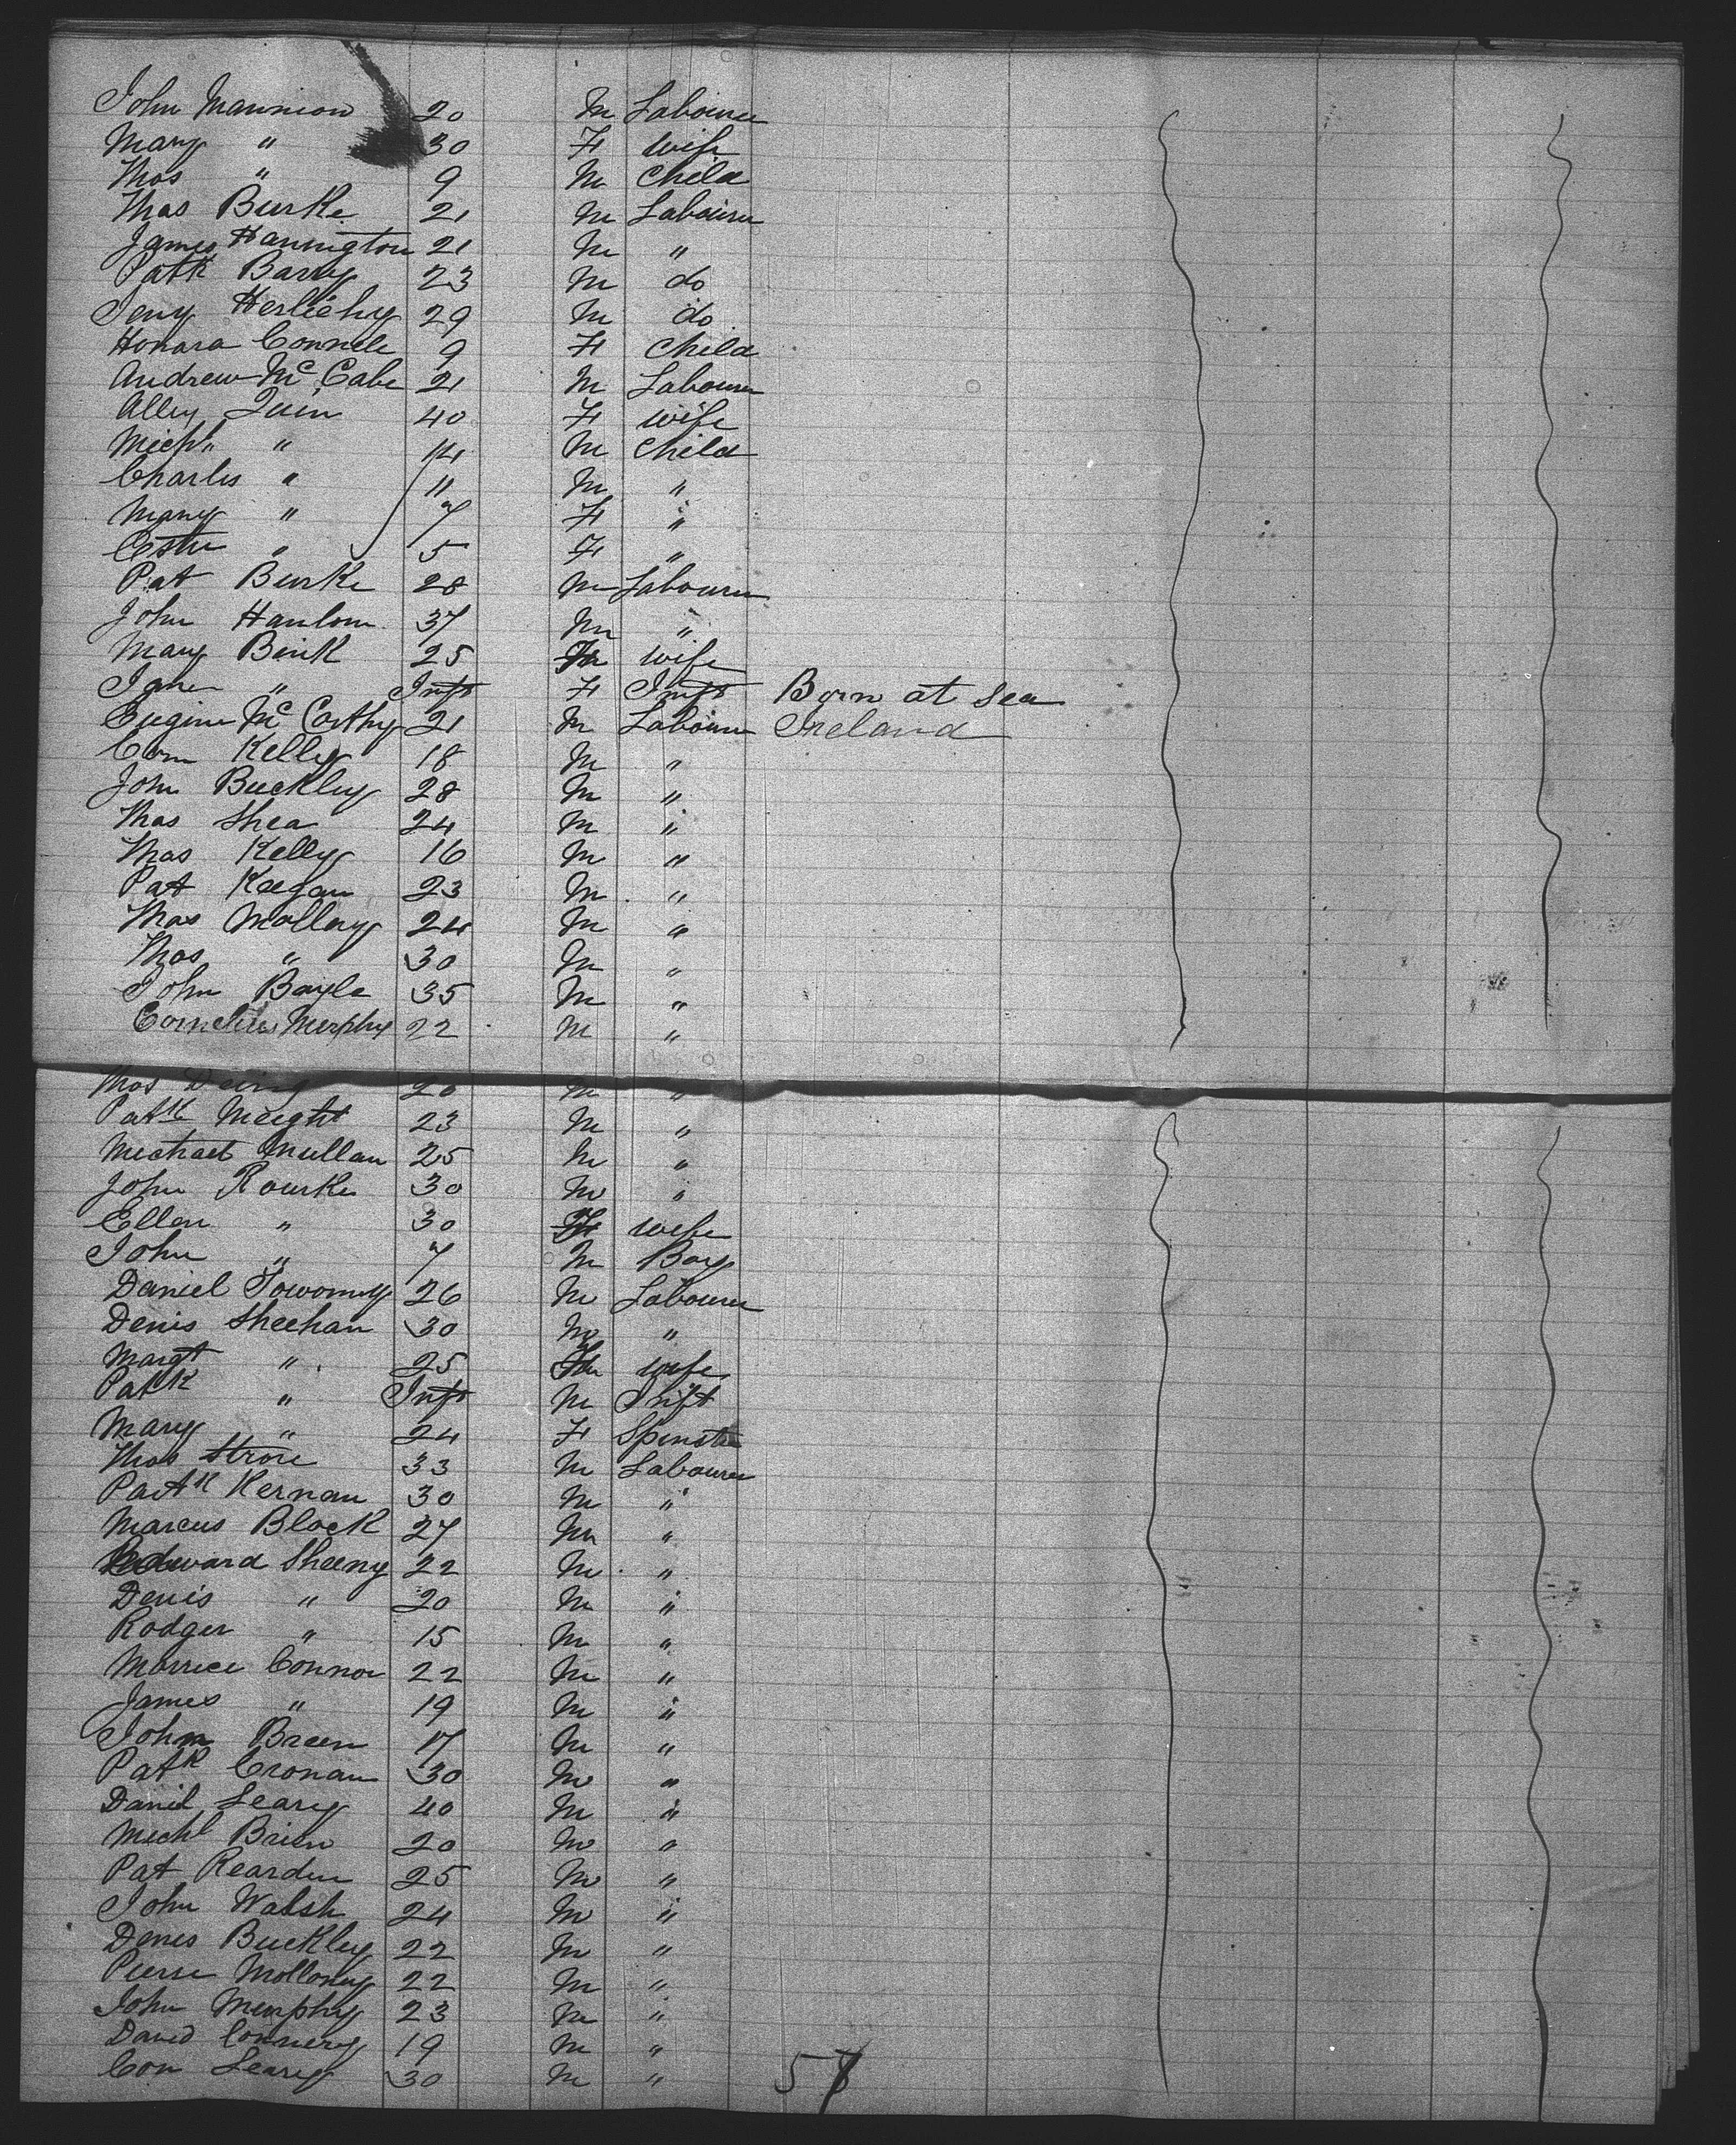 John Mannion 20 M Labourer
Mary " 30 F wife
Thos " 9 M Child
Thos Burke 21 M Labourer
James Hannington 21 M "
Patk Barry 23 M do
Jerry Herlichy 29 M do
Honara Connell 9 F Child
Andrew Mc Cabe 21 M Labourer
Alley Quin 40 F wife
Michl " 14 M Child
Charles " 11 M "
Mary " 7 F "
Esther " 5 F "
Pat Burke 28 M Labourer
John Hanlon 37 M "
Mary Bink 25 F wife
Jane " Inft F Inft Born at sea
Eugine Mc Carthy 21 M Labourer Ireland
Corn Kelly 18 M "
John Buckley 28 M "
Thos Shea 24 M "
Thos Kelly 16 M "
Pat Keegan 23 M "
Thos Mollay 24 M "
Thos " 30 M "
John Boyle 35 M "
Cornelius Murphy 22 M "
Thos 20 M "
Patk Meight 23 M "
Michael Mullan 25 M "
John Rourke 30 M "
Ellen " 30 F wife
John " 7 M Boy
Daniel Towomey 26 M Labourer
Denis Sheehan 30 M "
Margt " 25 F wife
Patk " Inft M Inft
Mary " 24 F Spinster
Thos 33 M Labourer
Patk Kernan 30 M "
Marcus Block 27 M "
Edward Sheeny 22 M "
Denis " 20 M "
Rodger " 15 M "
Morrice Connor 22 M "
James " 19 M "
John Breen 17 M "
Patk Cronan 30 M "
Daniel Leary 40 M "
Michl Brien 20 M "
Pat Rearden 25 M "
John Walsh 24 M "
Denis Buckley 22 M "
Pierse Molloney 22 M "
John Murphy 23 M "
David Connery 19 M "
Con Leary 30 M " 57